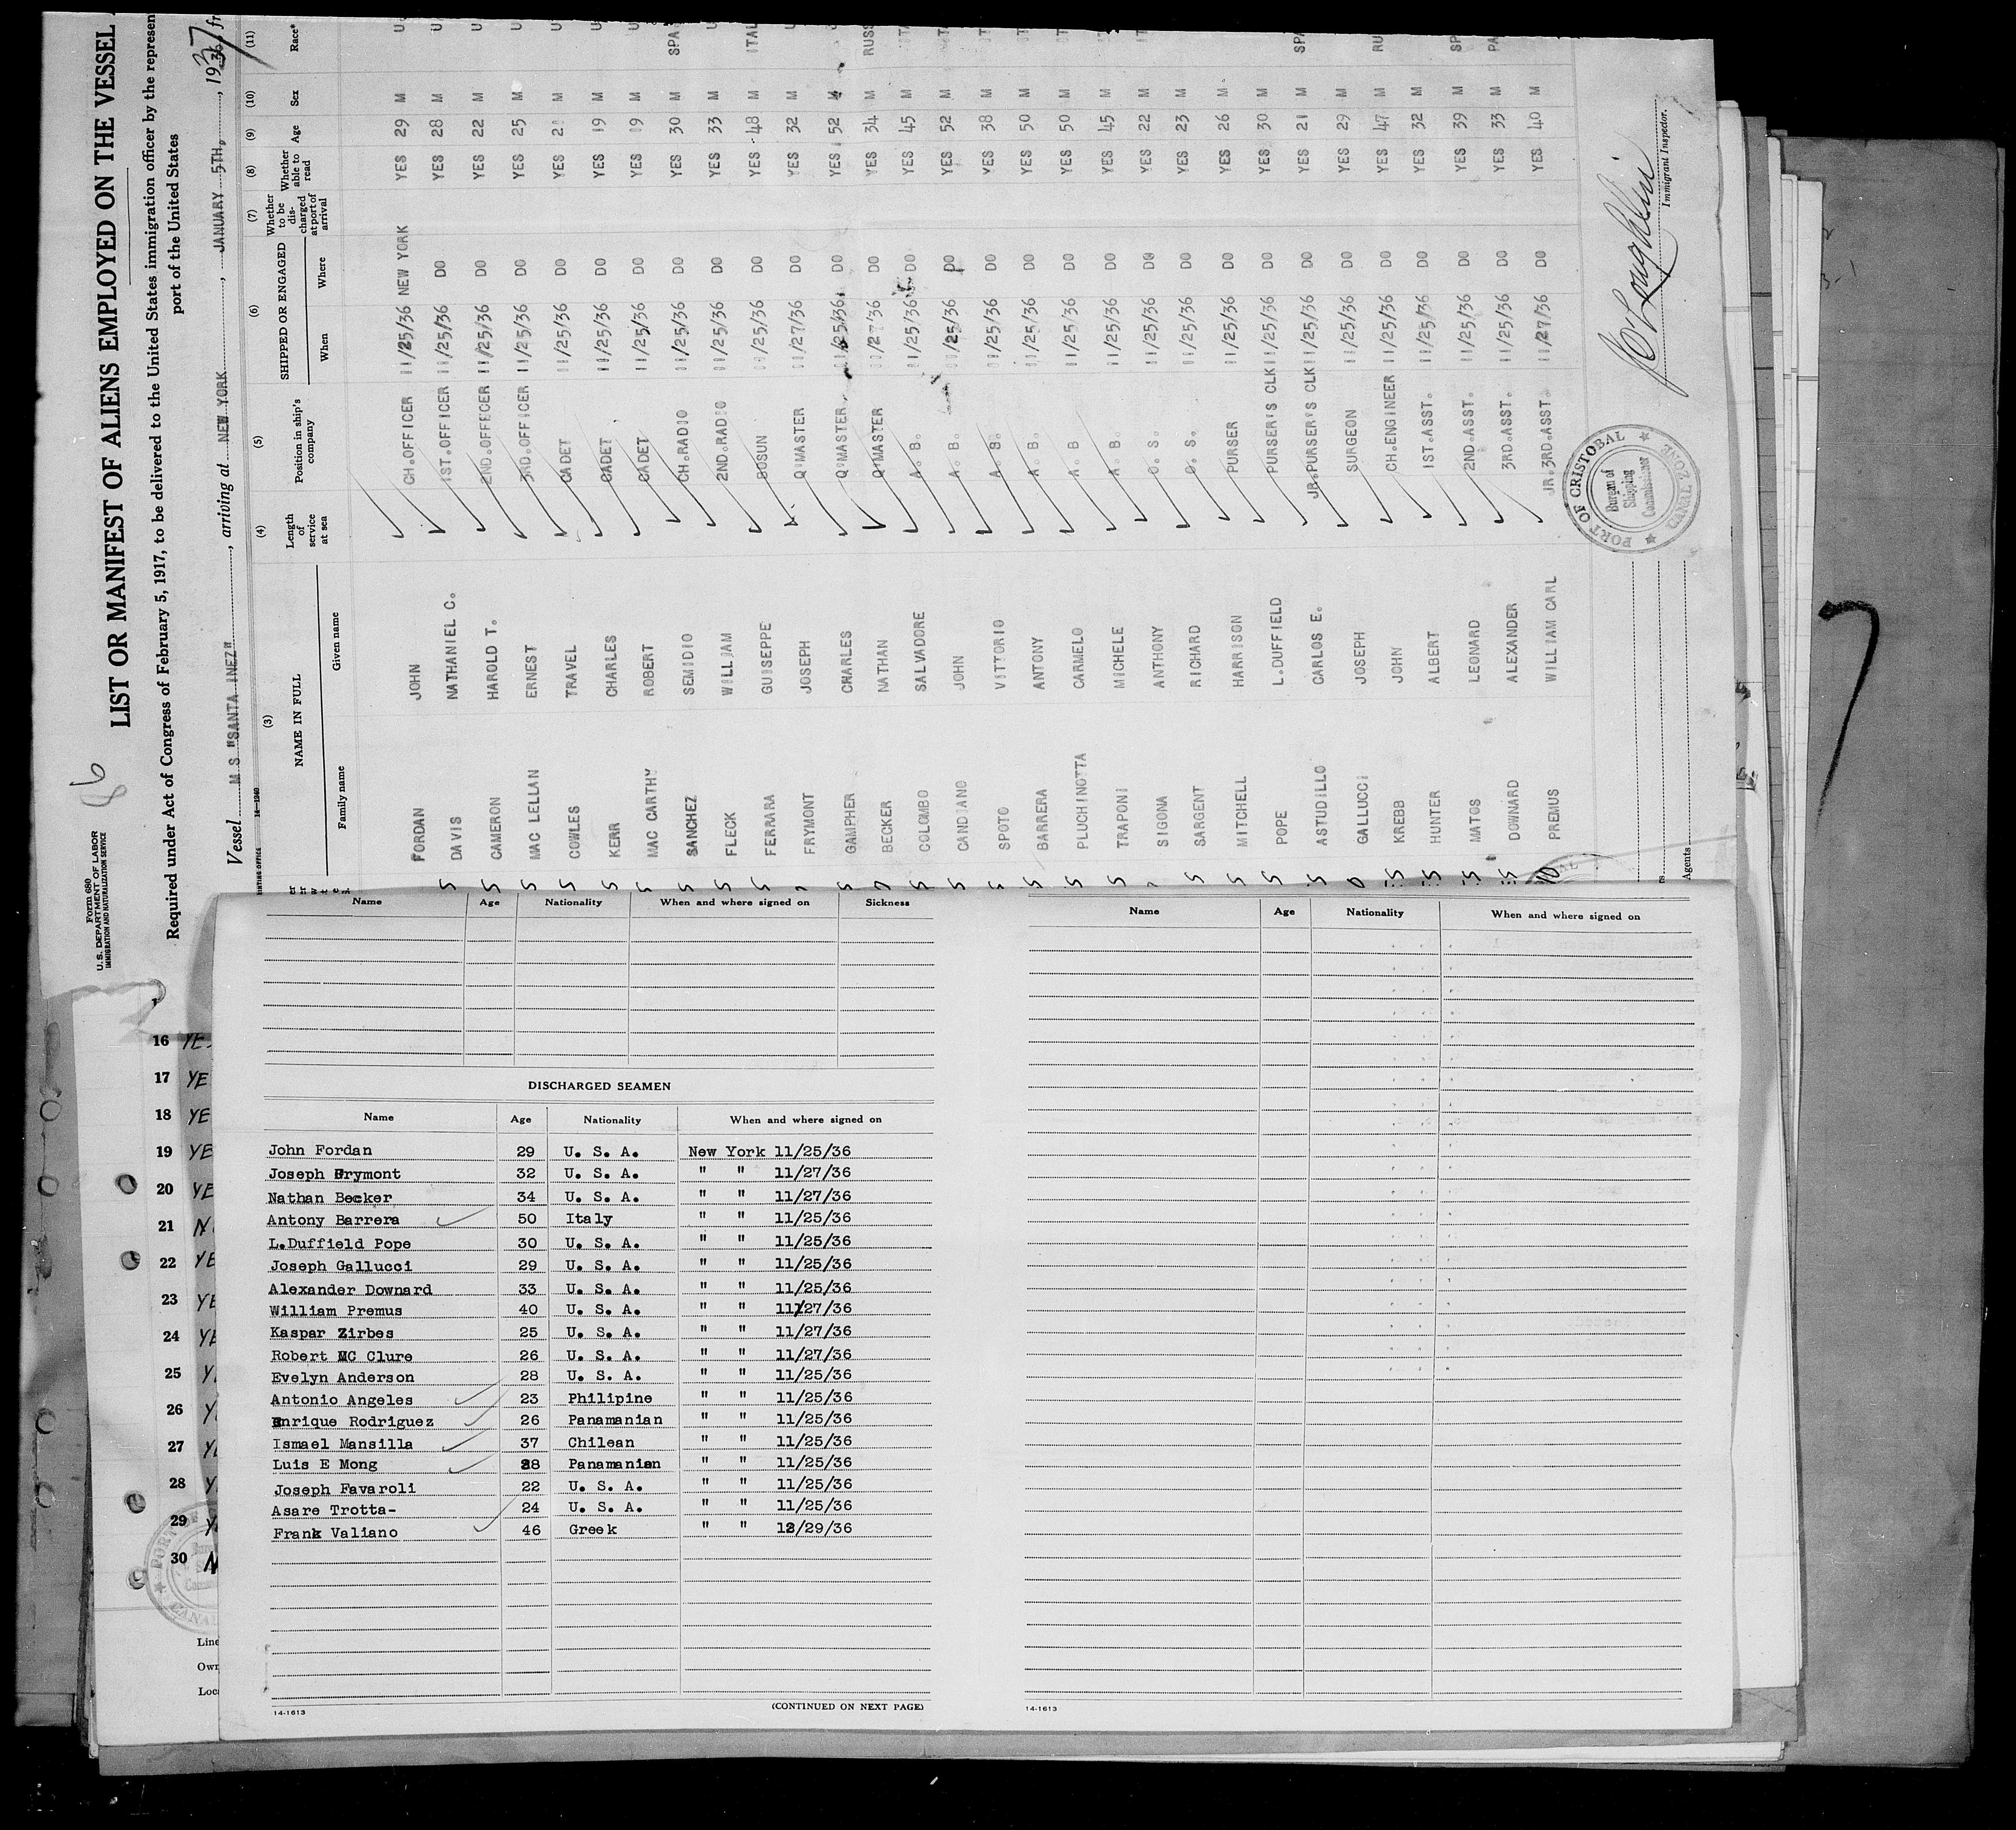 Form 680
U. S. DEPARTMENT OF LABOR
IMMIGRATION AND NATURALIZATION SERVICE
86
LIST OR MANIFEST OF ALIENS EMPLOYED ON THE VESSEL
Required under Act of Congress of February 5, 1917, to be delivered to the United States immigration officer by the represen
port of the United States
Vessel M S "SANTA INEZ", arriving at NEW YORK, JANUARY 5TH, 1937
(3) (4) (5) (6) (7) (8) (9) (10) (11)
NAME IN FULL Length of service at sea Position in ship's company SHIPPED OR ENGAGED Whether to be discharged at port of arrival Whether able to read Age Sex Race*
Family name Given name When Where
FORDAN JOHN CH.OFFICER 11/25/36 NEW YORK YES 29 M U
DAVIS NATHANIEL C. 1ST.OFFICER 11/25/36 DO YES 28 M U
CAMERON HAROLD T. 2ND.OFFICER 11/25/36 DO YES 22 M U
MAC LELLAN ERNEST 3RD.OFFICER 11/25/36 DO YES 25 M U
COWLES TRAVEL CADET 11/25/36 DO YES M U
KERR CHARLES CADET 11/25/36 DO YES 19 M U
MAC CARTHY ROBERT CADET 11/25/36 DO YES 19 M U
SANCHEZ SEMIDIO CH.RADIO 11/25/36 DO YES 30 M SPA
FLECK WILLIAM 2ND.RADIO 11/25/36 DO YES 33 M U
FERRARA GUISEPPE BOSUN 11/25/36 DO YES 48 M ITAL
FRYMONT JOSEPH Q'MASTER 11/27/36 DO YES 32 M U
GAMPHER CHARLES Q'MASTER 11/25/36 DO YES 52 M U
BECKER NATHAN Q'MASTER 11/27/36 DO YES 34 M RUSS
COLOMBO SALVADORE A. B. 11/25/36 DO YES 45 M IT
CANDIANO JOHN A. B. 11/25/36 DO YES 52 M IT
SPOTO VITTORIO A. B. 11/25/36 DO YES 38 M IT
BARRERA ANTONY A. B. 11/25/36 DO YES 50 M IT
PLUCHINOTTA CARMELO A. B 11/25/36 DO YES 50 M IT
TRAPONI MICHELE A. B. 11/25/36 DO YES 45 M IT
SIGONA ANTHONY O. S. 11/25/36 DO YES 22 M IT
SARGENT RICHARD O. S. 11/25/36 DO YES 23 M
MITCHELL HARRISON PURSER 11/25/36 DO YES 26 M
POPE L.DUFFIELD PURSER'S CLK 11/25/36 DO YES 30 M
ASTUDILLO CARLOS E. JR.PURSER'S CLK 11/25/36 DO YES 21 M SPA
GALLUCCI JOSEPH SURGEON 11/25/36 DO YES 29 M
KREBB JOHN CH.ENGINEER 11/25/36 DO YES 47 M RU
HUNTER ALBERT 1ST.ASST. 11/25/36 DO YES 32 M
MATOS LEONARD 2ND.ASST. 11/25/36 DO YES 39 M SP
DOWNARD ALEXANDER 3RD.ASST. 11/25/36 DO YES 33 M PA
PREMUS WILLIAM CARL JR.3RD.ASST. 11/27/36 DO YES 40 M
PORT OF CRISTOBAL
Bureau of
Shipping
Commissioner
CANAL ZONE
Immigrant Inspector.
Agents
16 YE
17 YE
18 YE
19 YE
20 YE
21 N
22 YE
23 YE
24 YE
25 Y
26 Y
27 Y
28 Y
29 Y
30 N
Line
Own
Loc
Name Age Nationality When and where signed on Sickness
DISCHARGED SEAMEN
Name Age Nationality When and where signed on
John Fordan 29 U. S. A. New York 11/25/36
Joseph Frymont 32 U. S. A. " " 11/27/36
Nathan Becker 34 U. S. A. " " 11/27/36
Antony Barrera 50 Italy " " 11/25/36
L.Duffield Pope 30 U. S. A. " " 11/25/36
Joseph Gallucci 29 U. S. A. " " 11/25/36
Alexander Downard 33 U. S. A. " " 11/25/36
William Premus 40 U. S. A. " " 11/27/36
Kaspar Zirbes 25 U. S. A. " " 11/27/36
Robert MC Clure 26 U. S. A. " " 11/27/36
Evelyn Anderson 28 U. S. A. " " 11/25/36
Antonio Angeles 23 Philipine " " 11/25/36
Enrique Rodriguez 26 Panamanian " " 11/25/36
Ismael Mansilla 37 Chilean " " 11/25/36
Luis E Mong 28 Panamanian " " 11/25/36
Joseph Favaroli 22 U. S. A. " " 11/25/36
Asare Trotta- 24 U. S. A. " " 11/25/36
Frank Valiano 46 Greek " " 12/29/36
(CONTINUED ON NEXT PAGE)
14-1613
Name Age Nationality When and where signed on
14-1613